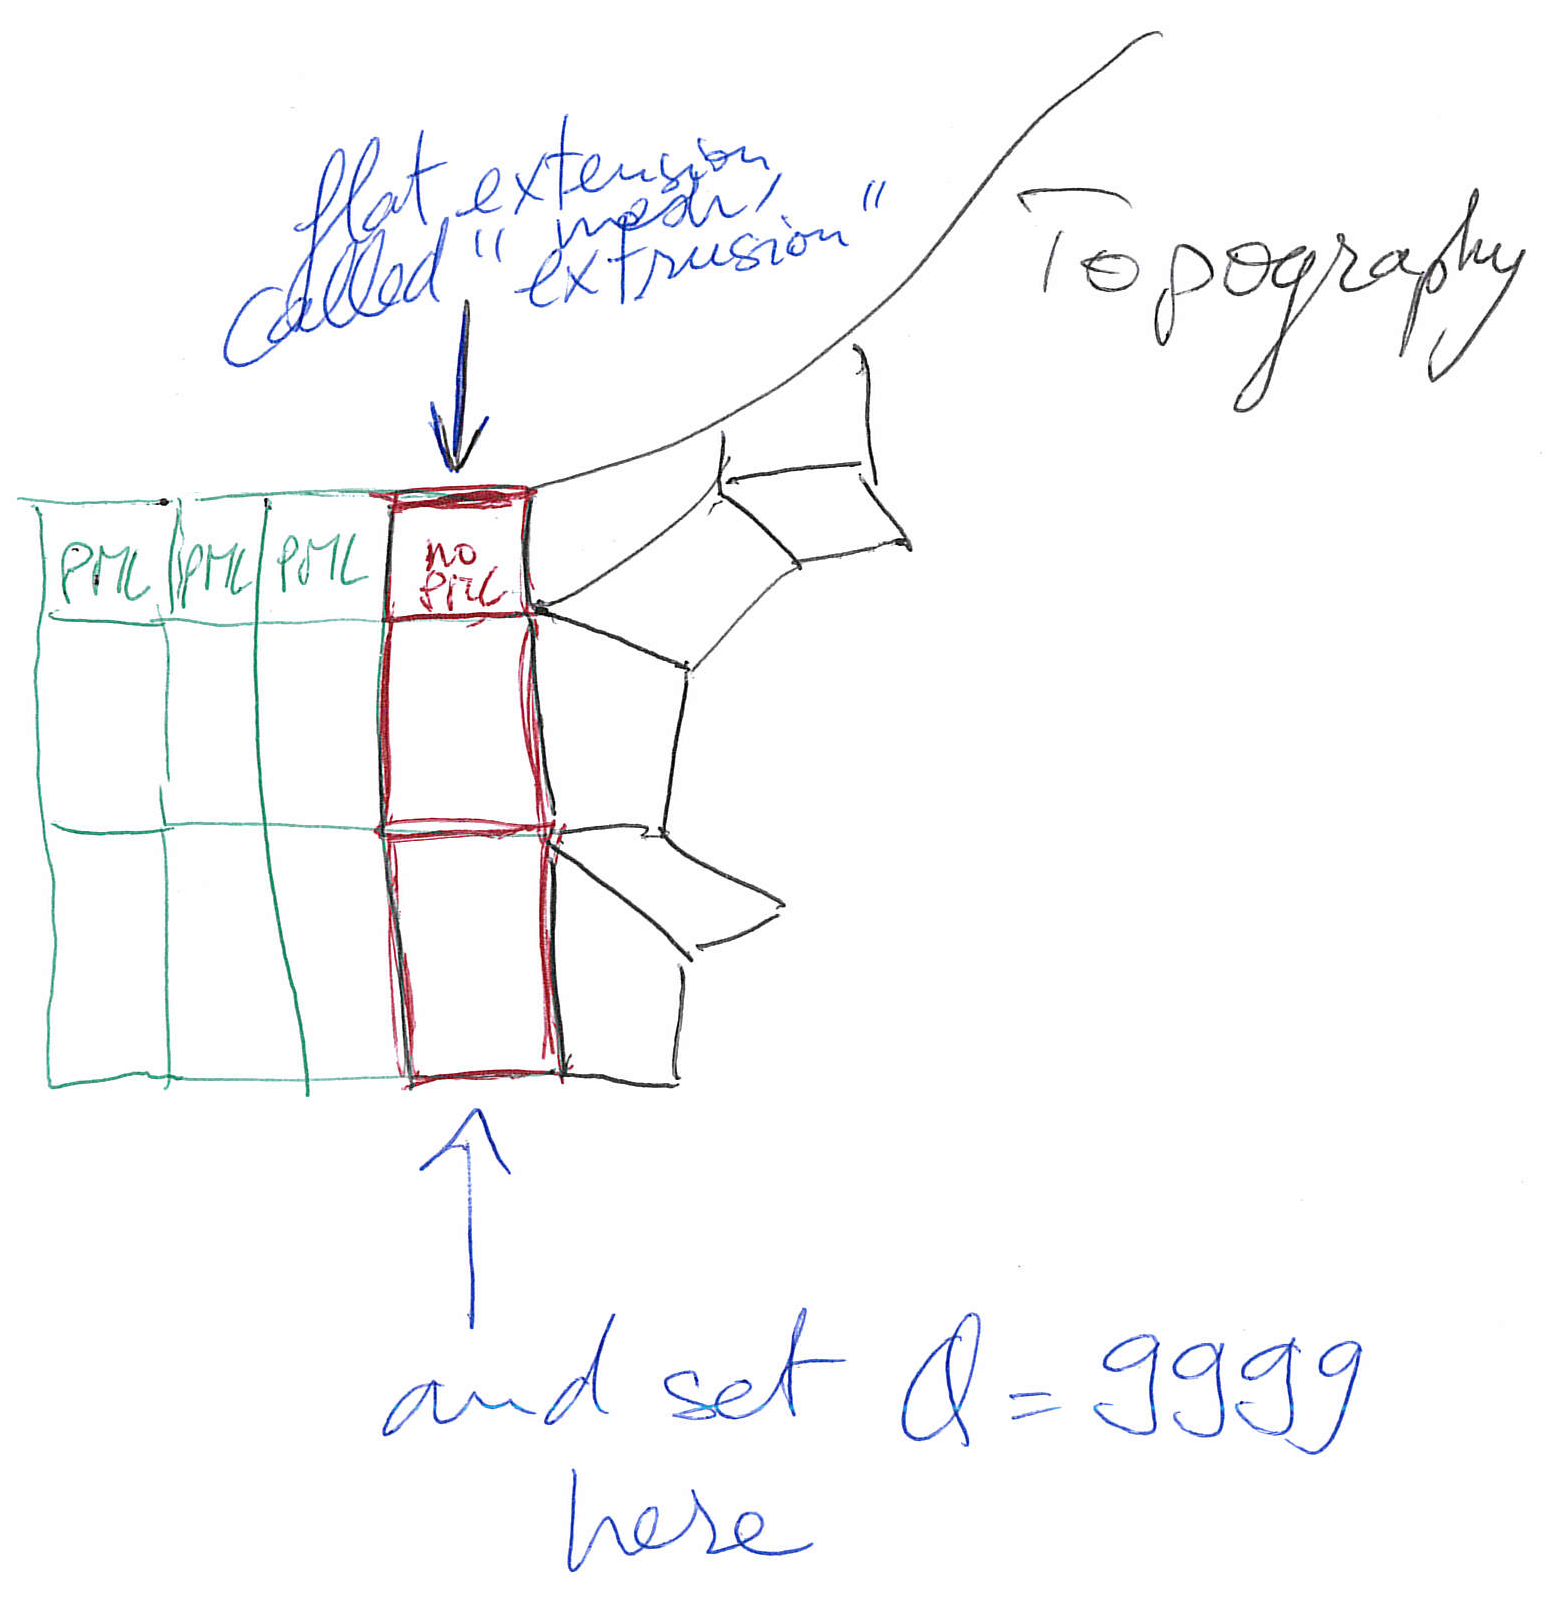 flat extension,
called "mesh
extrusion"
Topography
PML PML PML no
PML
and set Q = 9999
here